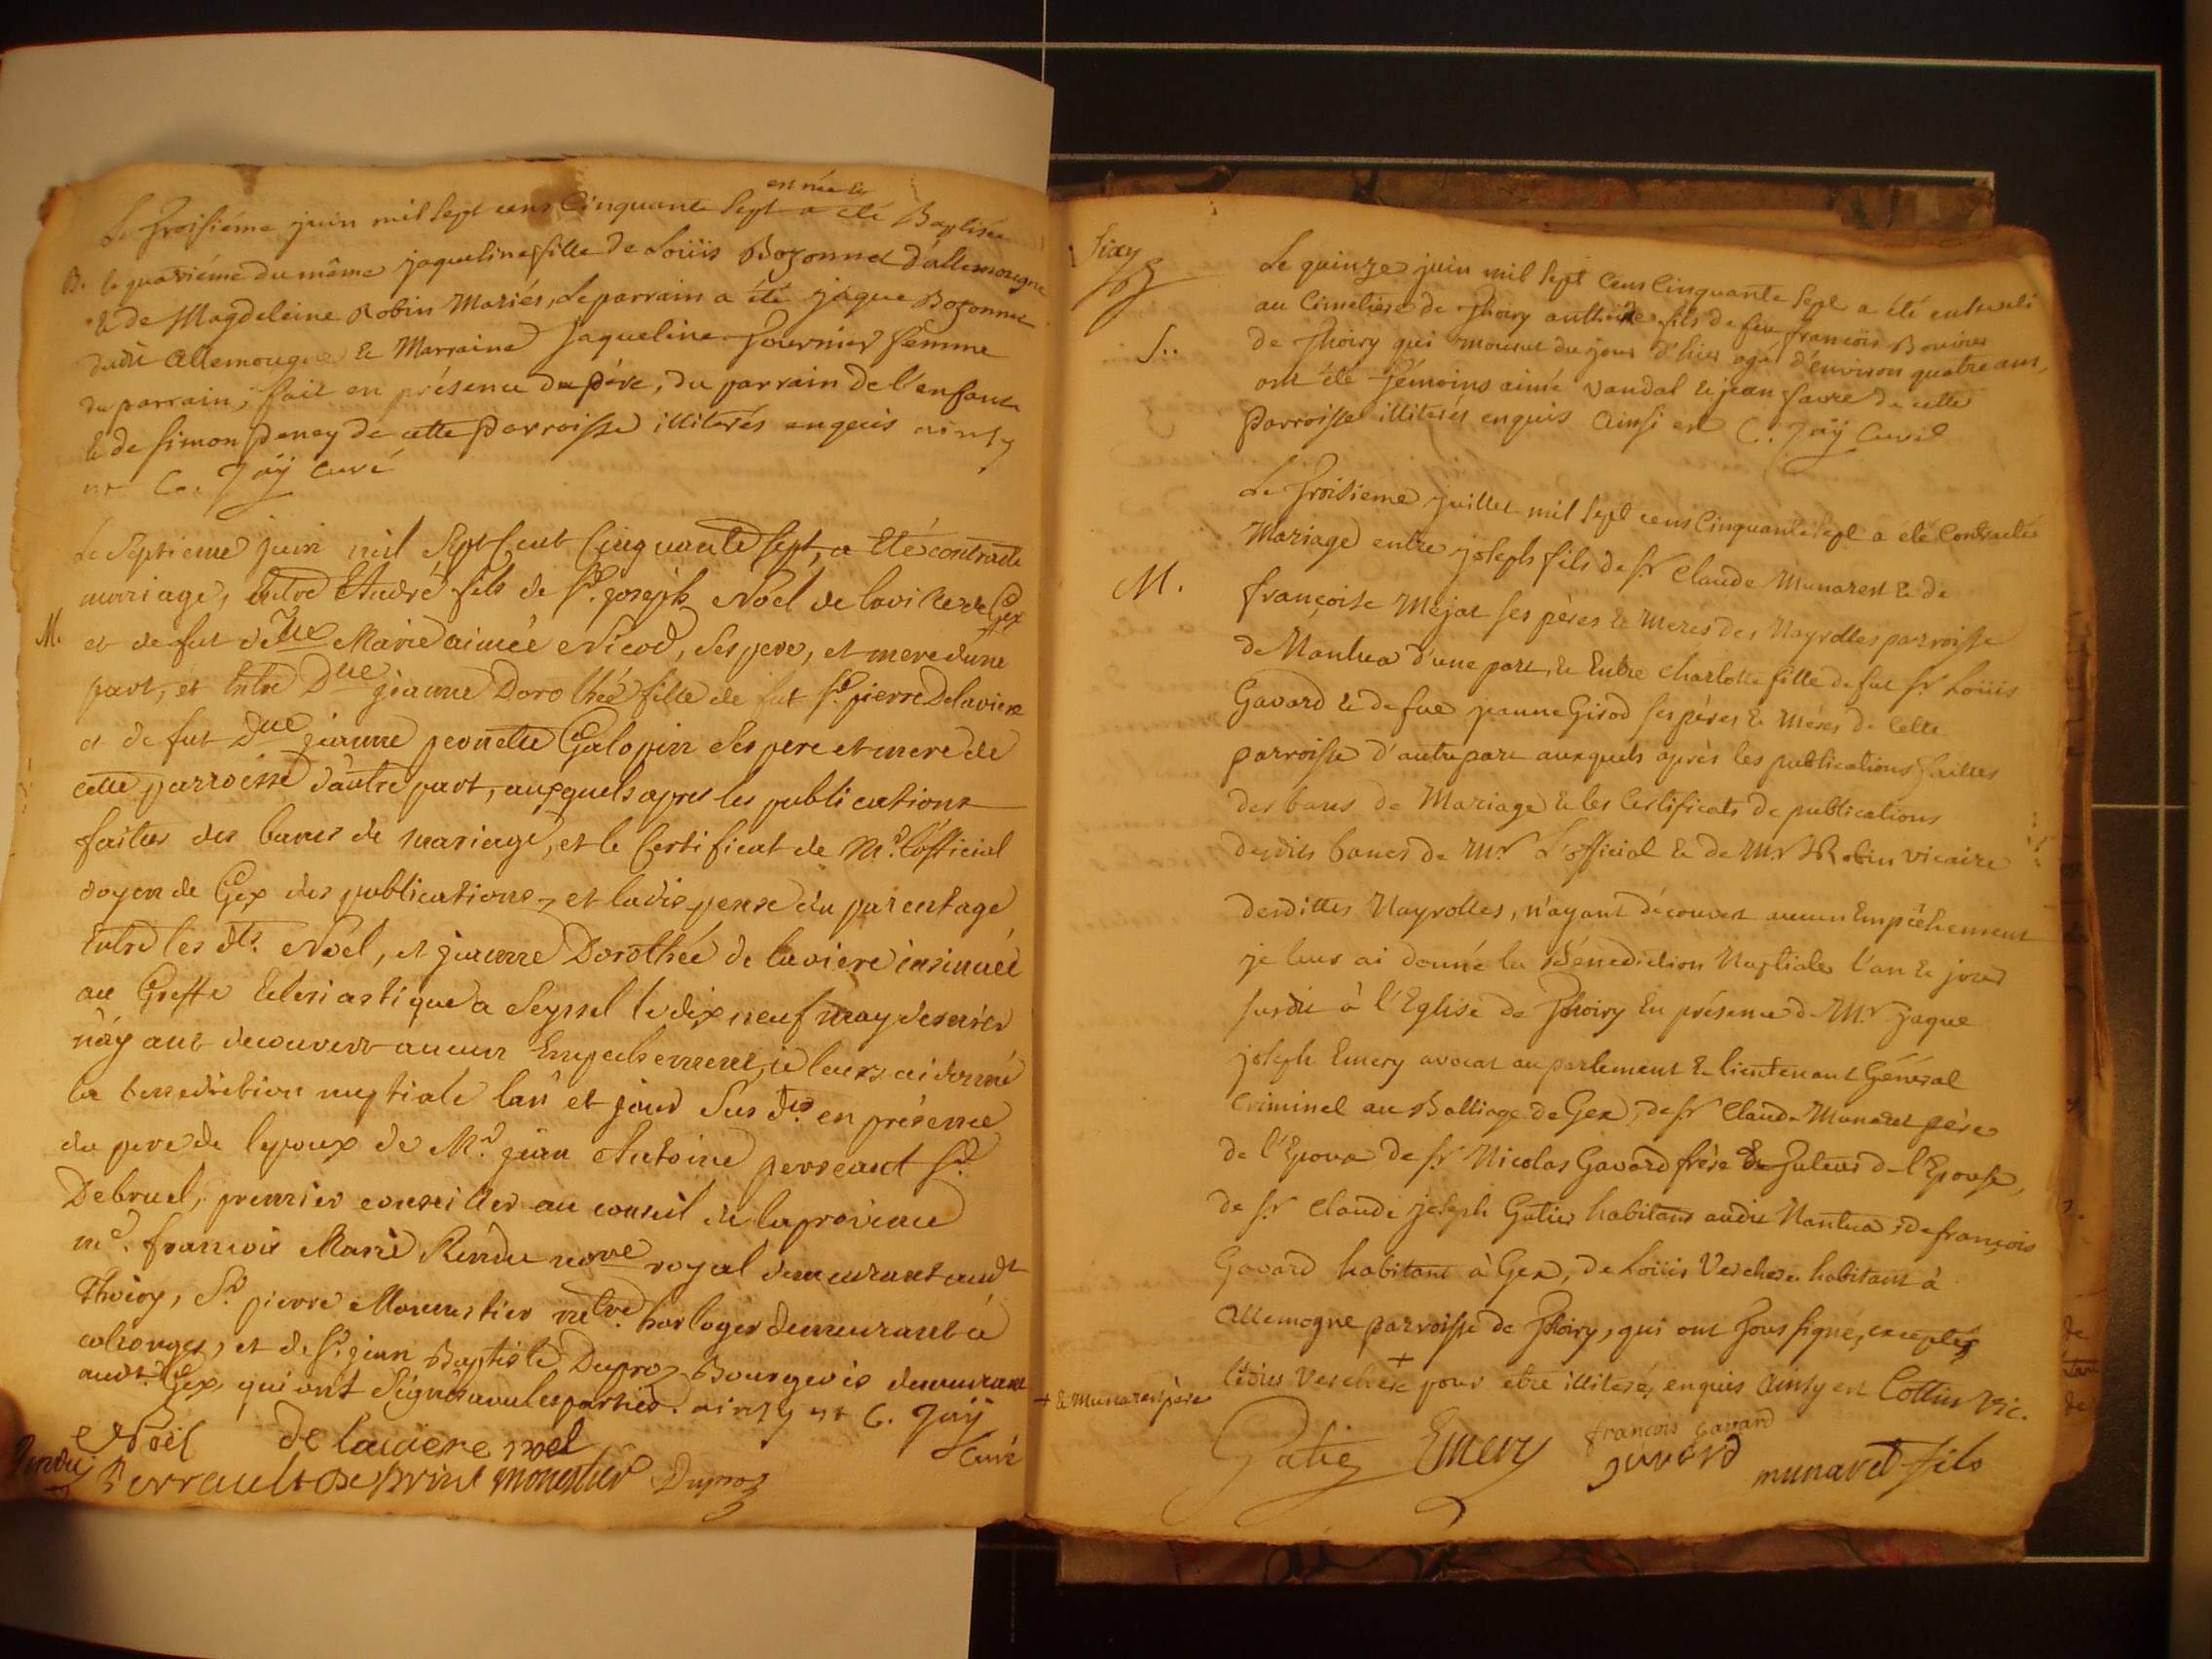 est née &
Le Troisiéme juin mil Sept cens Cinquante Sept a été Baptisée
B. le quatriéme du même jaqueline fille de Loüis Bozonnet d'allemougne
& de Magdeleine Robin Mariés, Le parrain a été jaque Bozonnet
dudit Allemougne & Marraine Jaqueline Fournier femme
du parrain, fait en présence du père, du parrain de l'enfant
& de Simon Peney de cette Parroisse illiterés enquis ainsy
est C. Jaÿ curé
Le Septieme juin mil Sept Cent Cinquante Sept, a été contracté
mariage, Entre André fils de Sr. joseph Noël de la ville de Gex
M. et de fut dlle Marie aimée Nicod, Ses pere, et mere d'une
part, et Entre Dlle jeanne Dorothée fille de fut Sr. pierre Delaviere
et de fut Dlle jeanne peonette Galopin Ses pere et mere de
cette parroisse d'autre part, auxquels apres les publications
faittes des bancs de mariage, et le Certificat de Mr. l'official
doyen de Gex des publications, et la dispense du parentage
Entre les dts. Noël, et jeanne Dorothée de laviere insinuée
au Greffe Eclesiastique a Seyssel le dix neuf may dernier
n'ayant decouvert aucun Empechement, je leurs ai donné
la benediction nuptiale l'an et jour Sus dts. en présence
du pere de lepoux de Mr. jean Antoine perreault Sr.
Debruel, premier conseiller au conseil de la province
me. françois Marie Rendu nore royal demeurant audt
Thoiry, Sr. pierre Monnestier me horloger demeurant à
colonges, et de Sr. jean Baptiste Duproz Bourgeois demeurant
audt. Gex, qui ont Signés avec les parties. ainsy est C. Jaÿ
Curé
Noël de laviere noel
Rendu Perrault De Bruel monestier Duproz
Le quinze juin mil Sept Cens Cinquante Sept a été enseveli
au Cimetiere de Thoiry anthoine fils de feu françois Bouvier
S.. de Thoiry qui mourut du jour d'hier agé d'environ quatre ans,
ont été Témoins aimé Vandal & jean favre de cette
Parroisse illiterés enquis Ainsi est C. Jaÿ Curé
Le Troisieme juillet mil Sept cens Cinquante Sept a été Contracté
Mariage entre joseph fils de Sr Claude Munaret & de
M. françoise Mejat ses pères & Meres des Nayrolles parroisse
de Nantua d'une part, & Entre Charlotte fille de fut Sr Loüis
Gavard & de fue jeanne Girod ses pères & Méres de Cette
parroisse d'autre part auxquels après les publications faittes
des bans de Mariage & les Certificats de publications
desdits bancs de Mr L'official & de Mr Robin vicaire
desdittes Nayrolles, n'ayant découvert aucun Empêchement
je leur ai donné la Bénediction Nuptiale l'an & jour
susdit à l'Eglise de Thoiry En présence de Mr jaque
joseph Emery avocat au parlement & lieutenant Général
Criminel au Balliage de Gex, de Sr Claude Munaret père
de l'Epoux de Sr Nicolas Gavard frère & Tuteur de l'Epouse,
de Sr Claude joseph Gatier habitant audit Nantua, de françois
Gavard habitant à Gex, de Loüis Verchere habitant à
Allemogne parroisse de Thoiry, qui ont Tous signé, exceptés
ledit Verchere + pour etre illiteré, enquis Ainsy est Collin Vic.
+ & Munaret père
Gatie Emery françois gavard
gavard munaret fils